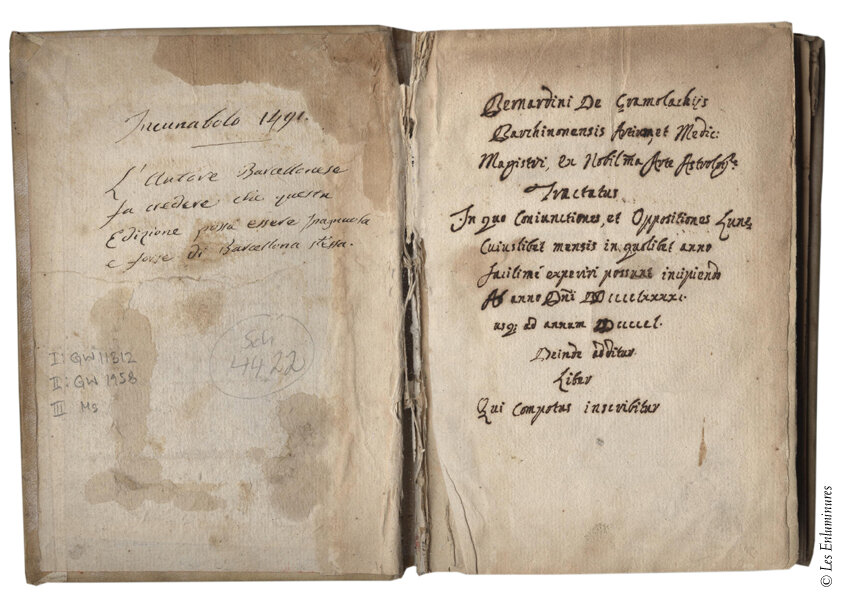 Incunabolo 1491.
L'Autore Barcellonese
fa credere che questa
Edizione possa essere spagnuola
e forse di Barcellona stessa.
I: GW 11812
II: GW 1958
III Ms
Sch
4422
Bernardini De Gramolachijs
Barchinonensis Artium, et Medic:
Magistri, ex Nobil.ma Arte Astrolog.e
Tractatus
In quo Coniunctiones, et Oppositiones Lune,
Cuiuslibet mensis in quolibet anno
facilimé experiri possunt incipiendo
Ab anno Dni MCCCCLXXXXI.
usq; ad annum MDCCCCL.
Deinde additur
Liber
Qui Compotus inscribitur
© Les Enluminures